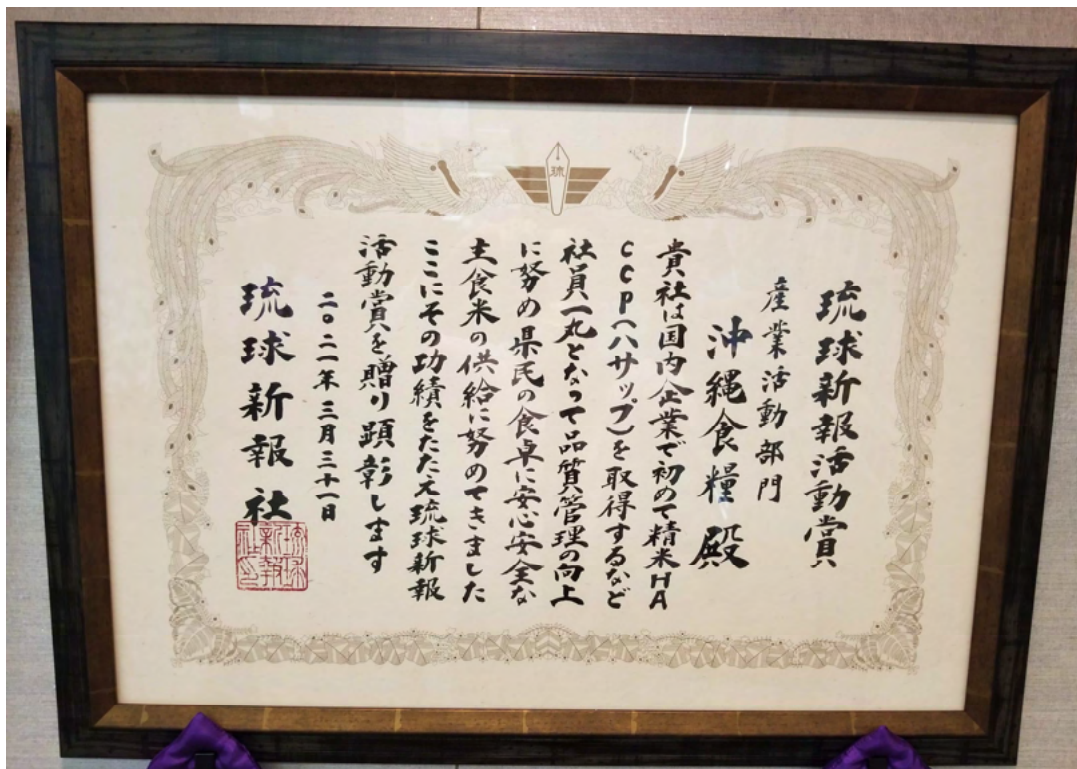 琉球新報活動賞
産業活動部門
沖縄食糧殿
貴社は国内企業で初めて精米HA
CCP(ハサップ)を取得するなど
社員一丸となって品質管理の向上
に努め県民の食卓に安心安全な
主食米の供給に努めてきました
ここにその功績をたたえ琉球新報
活動賞を贈り顕彰します
二〇二一年三月三十一日
琉球新報社
琉球
新報
社印
琉